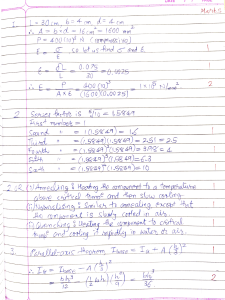 Marks
1 L = 30 cm, b = 4 cm, d = 4 cm
∴ A = b × d = 16 cm² = 1600 mm²
P = 400(10)³ N (compressive)
E = σ/e so let us find σ and E
E = δL/L = 0.075/30 = 0.0025
∴ E = P/A×E = 400(10)³/(1600)(0.0025)
1
1
2
2. Series factor is = 1.5849
First number = 1
Second " = (1.5849)¹ = 1.6
Third " = (1.5849)(1.5849) = 2.51 = 2.5
Fourth " = (1.5849)³ = 3.98 = 4
Fifth " = (1.5849)⁴ = 6.3
Sixth " = (1.5849)⁵ = 10
1
1
2.2. (1) Annealing : Heating the component to a temperature
above critical and then slow cooling.
(2) Normalising : Similar to annealing except that
the component is slowly cooled in air.
(3) Quenching : Heating the component to critical
and cooling it rapidly in water or air.
1
1
3. Parallel axis theorem, I base = I₀ + A(h/3)²
∴ I₀ = I base - A(h/3)²
= bh³/12 - (½bh)(h²/9) = bh³/36
1
2